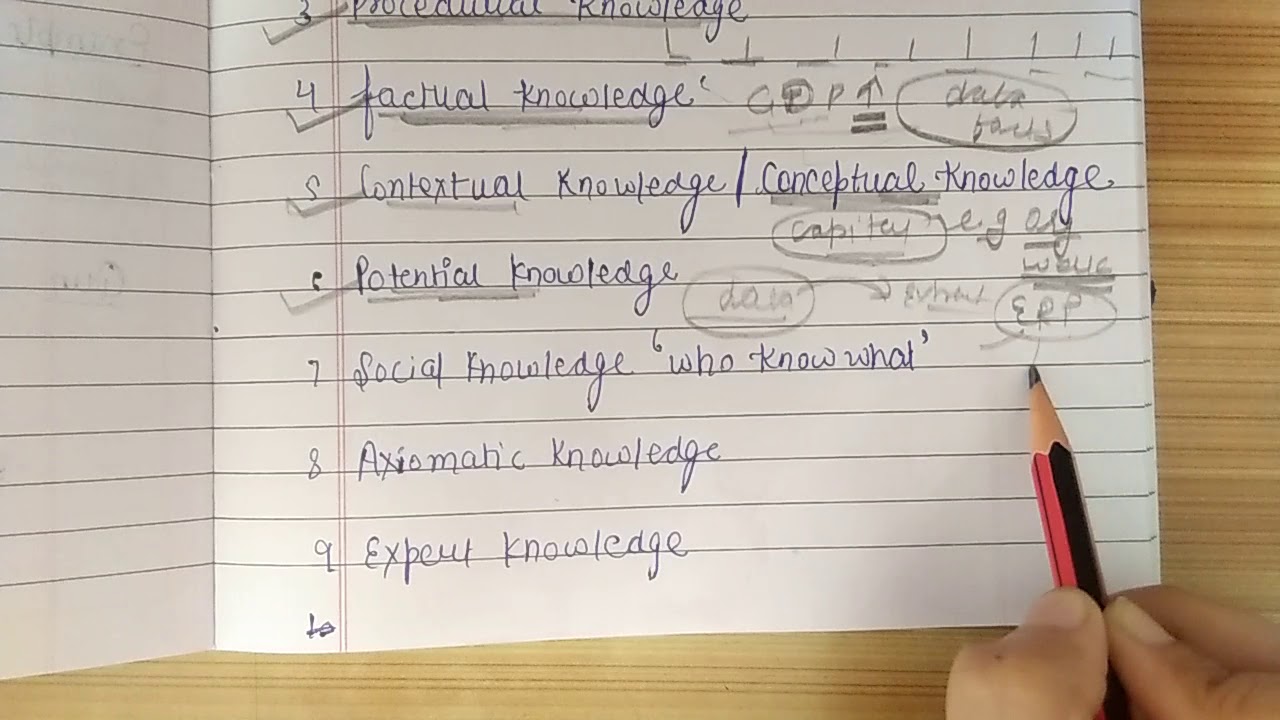 3 Procedural Knowledge
4 factual knowledge GDP↑ data
facts
5 Contextual Knowledge / Conceptual Knowledge
e.g org
6 Potential Knowledge data → extract ERP
7 Social Knowledge 'who know what'
8 Axiomatic Knowledge
9 Expert Knowledge
10